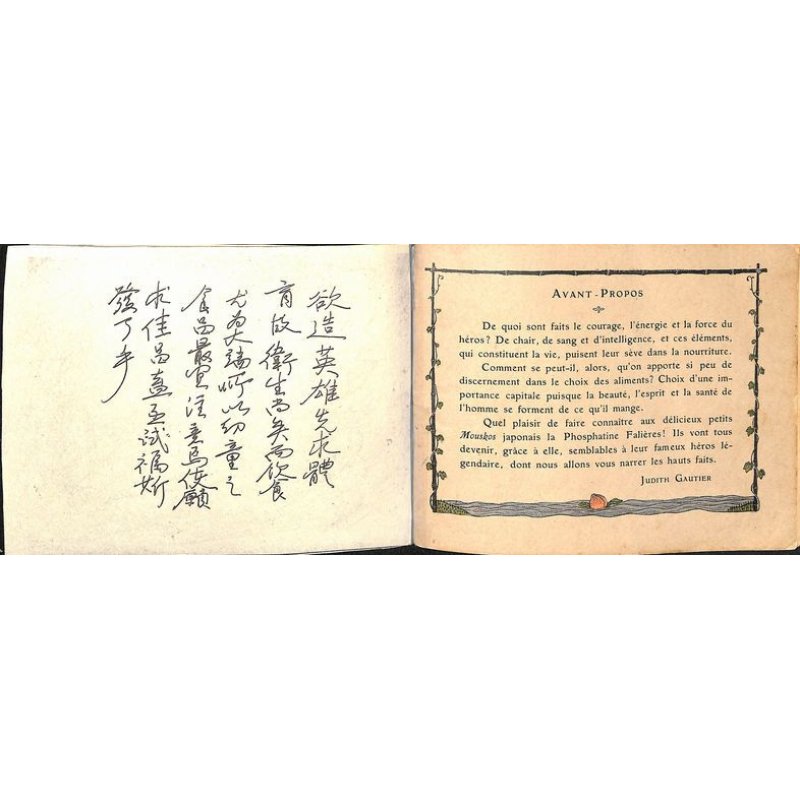 欲造英雄先求體
育故衛生尚矣而飲食
尤為大端所以幼童之
食品最宜注意焉願
求佳品盍亟試福斯
發丁乎
AVANT-PROPOS
De quoi sont faits le courage, l'énergie et la force du
héros? De chair, de sang et d'intelligence, et ces éléments,
qui constituent la vie, puisent leur sève dans la nourriture.
Comment se peut-il, alors, qu'on apporte si peu de
discernement dans le choix des aliments? Choix d'une im-
portance capitale puisque la beauté, l'esprit et la santé de
l'homme se forment de ce qu'il mange.
Quel plaisir de faire connaître aux délicieux petits
Mouskos japonais la Phosphatine Falières! Ils vont tous
devenir, grâce à elle, semblables à leur fameux héros lé-
gendaire, dont nous allons vous narrer les hauts faits.
JUDITH GAUTIER